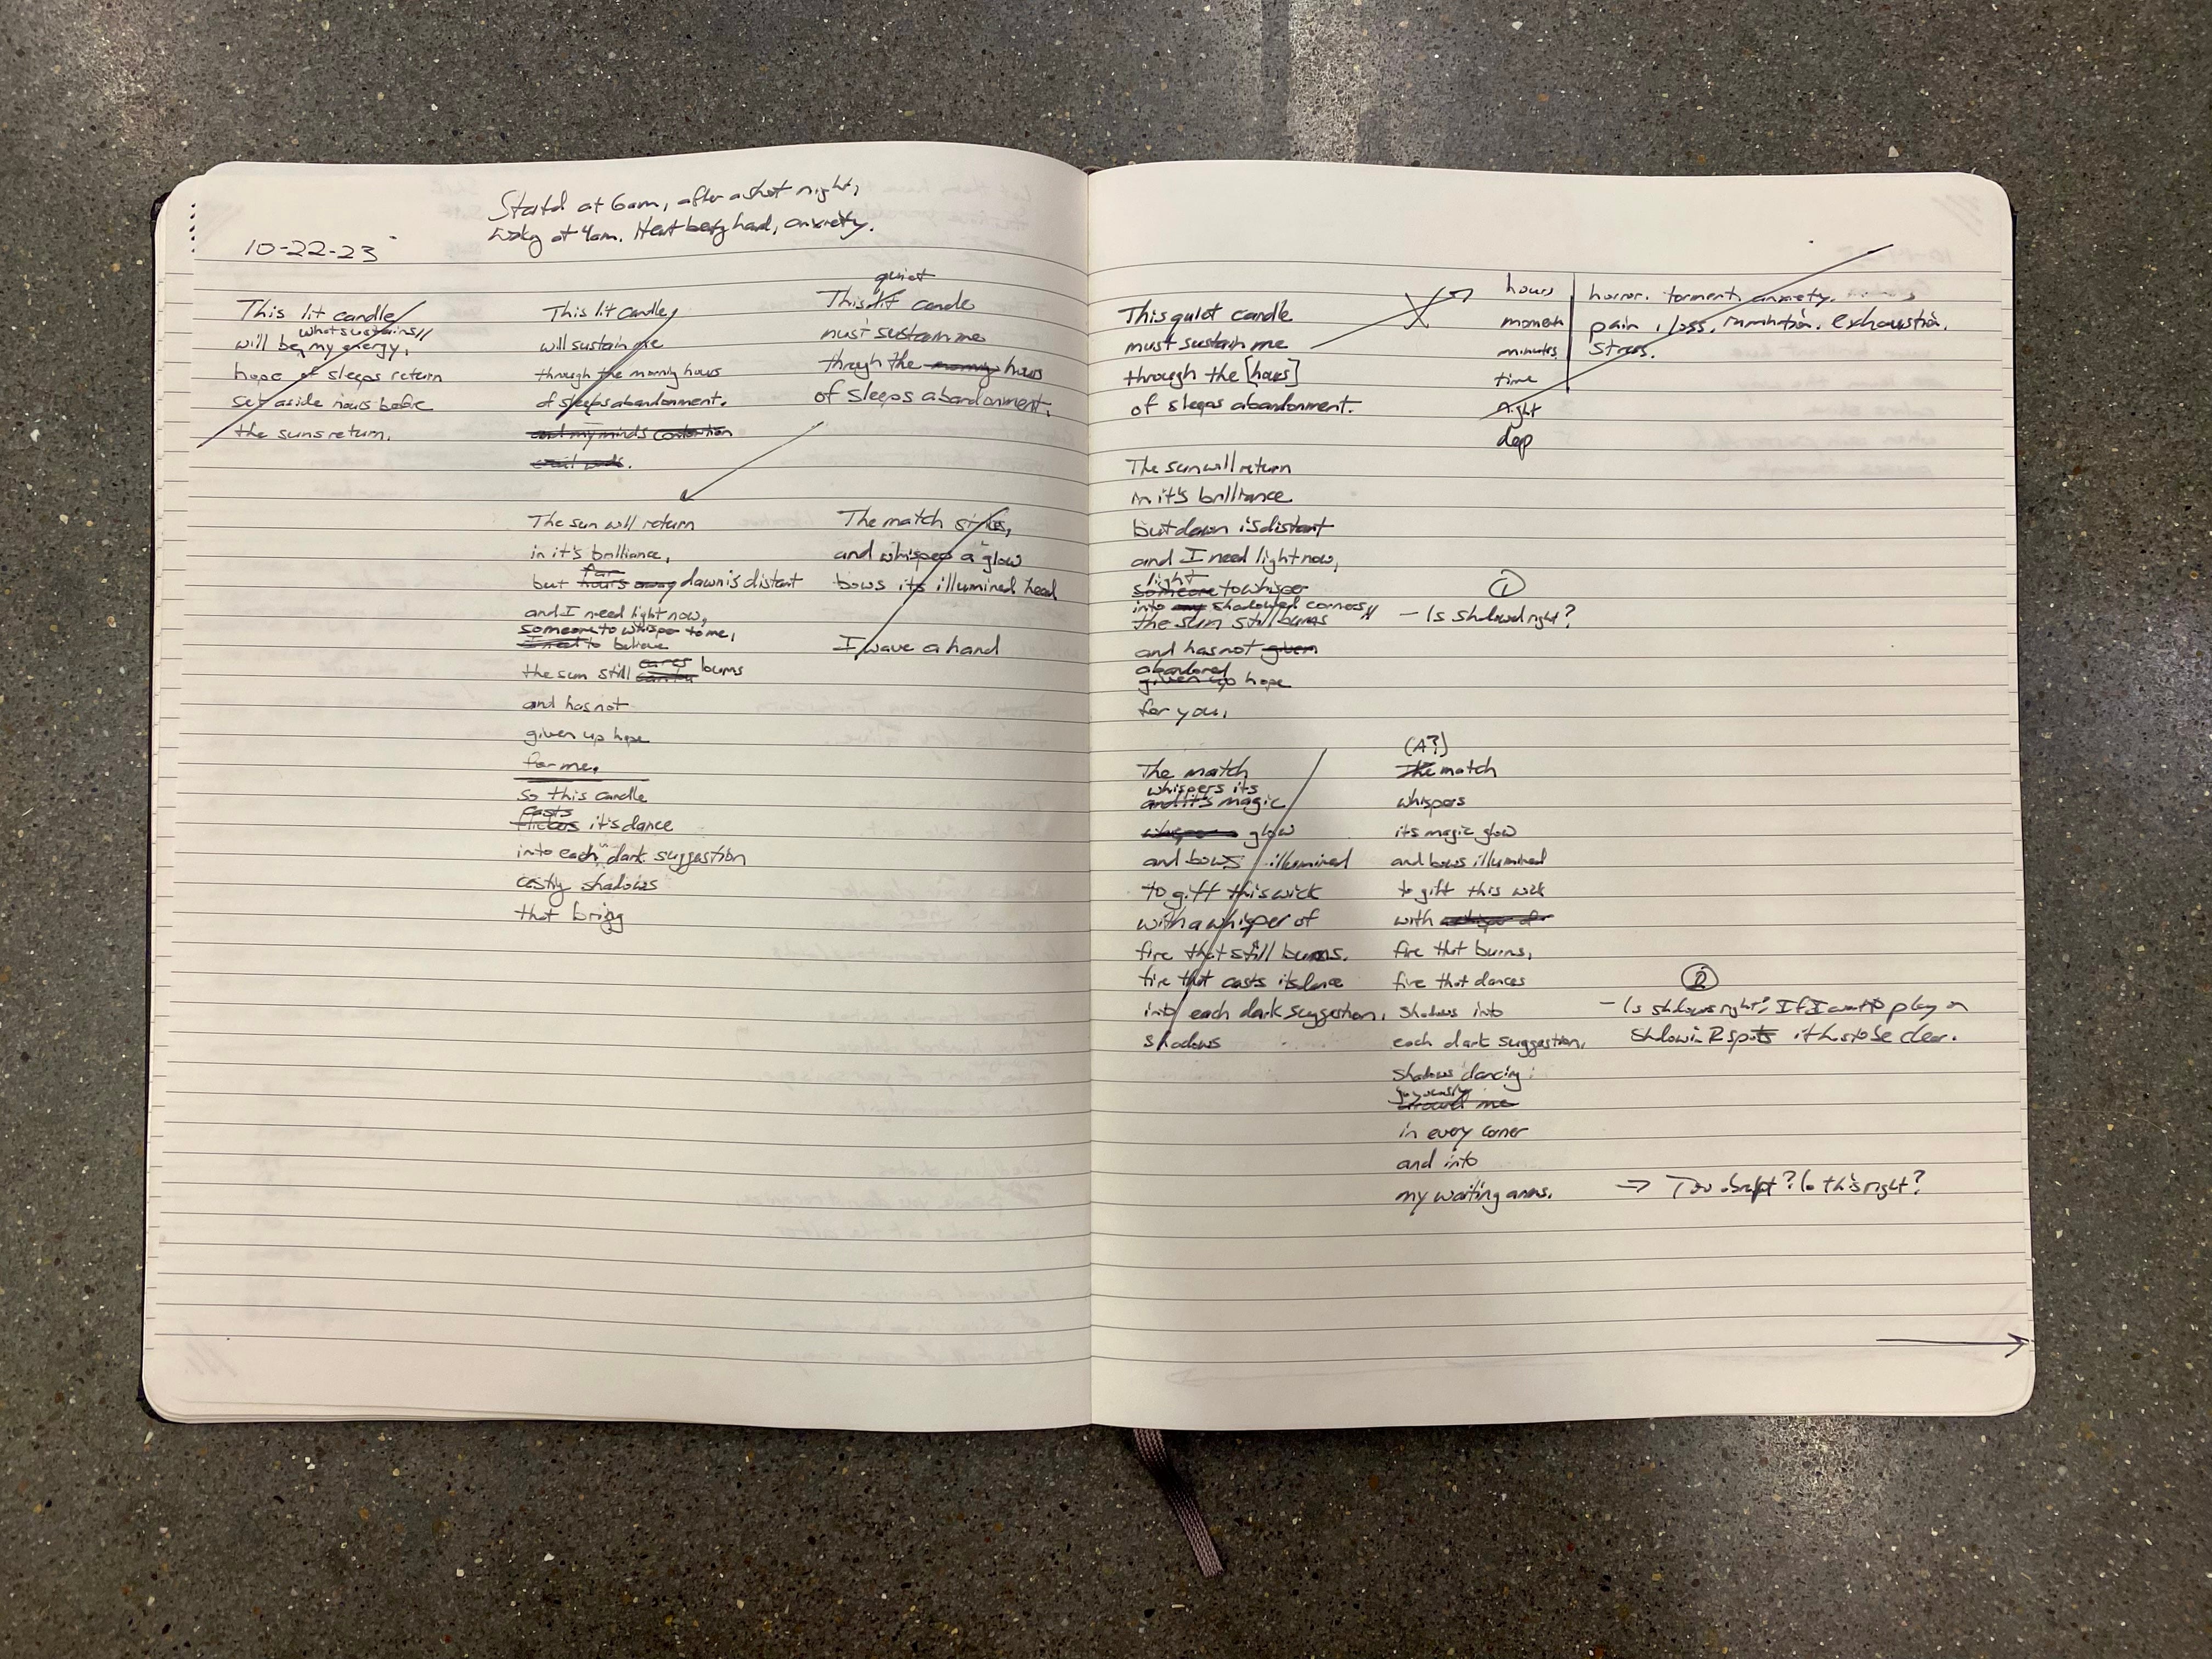 10-22-23
Startd at 6am, after a short night,
at 4am. Heart beatg hard, anxiety.
This lit candle
what sustains
will be my energy,
hope of sleeps return
set aside hours before
the suns return.
This lit candle,
will sustain me
through the morning hours
of sleeps abandonment.
and my minds contortion
quiet
This lit candle
must sustain me
through the morning hours
of sleeps abandonment.
The sun will return
in it's brilliance,
far
but hours away dawn is distant
and I need light now,
someone to whisper to me,
I need to believe
cares
the sun still burns
and has not
given up hope
for me.
so this candle
casts
flickers it's dance
into each dark suggestion
casting shadows
that bring
The match strikes,
and whispers a glow
bows its illumined head
I wave a hand
This quiet candle
must sustain me
through the [hours]
of sleeps abandonment.
hours
moments
minutes
time
night
deep
horror. torment, anxiety.
pain, loss, rumination. exhaustion.
stress.
The sun will return
in it's brilliance
but dawn is distant
and I need light now,
light
someone to whisper
into my shadowed corners
the sun still burns
and has not given
abandoned
given up hope
for you.
①
- Is shadowed right?
The match
whispers its
and it's magic
glow
and bows illumined
to gift this wick
with a whisper of
fire that still burns.
fire that casts its dance
into each dark suggestion,
shadows
(A?)
The match
whispers
its magic glow
and bows illumined
to gift this wick
with a whisper of
fire that burns,
fire that dances
shadows into
each dark suggestion,
shadows dancing
joyously
around me
in every corner
and into
my waiting arms.
②
- Is shadows right? If I want to play on
shadow in 2 spots it has to be clear.
→ Too abrupt? Is this right?